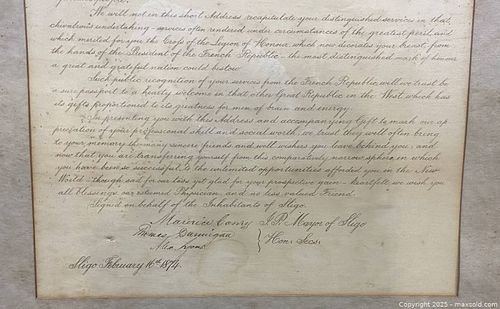 We will not in this short Address recapitulate your distinguished services in that,
chivalrous undertaking - services often rendered under circumstances of the greatest peril and
which merited for you the Cross of the Legion of Honour which now decorates your breast from
the hands of the President of the French Republic - the most distinguished mark of honour
a great and grateful nation could bestow.
Such public recognition of your services from the French Republic, will we trust be
a sure passport to a hearty welcome in that other Great Republic in the West which has
its gifts proportioned to its greatness for men of brain and energy.
In presenting you with this Address and accompanying Gift to mark our ap
preciation of your professional skill and social worth, we trust they will often bring
to your memory the many sincere friends and well wishers you leave behind you, and
now that you are transferring yourself from this comparatively narrow sphere in which
you have been so successful to the unlimited opportunities afforded you in the New
World - though sad for our loss yet glad for your prospective gain - heartfelt we wish you
all blessings our esteemed Physician, and no less valued Friend.
Signed on behalf of the Inhabitants of Sligo.
Maurice Conry J.P. Mayor of Sligo
Alex Lyons } Hon. Secs.
Sligo February 16th 1874.
Copyright © 2025 - www.maxsold.com